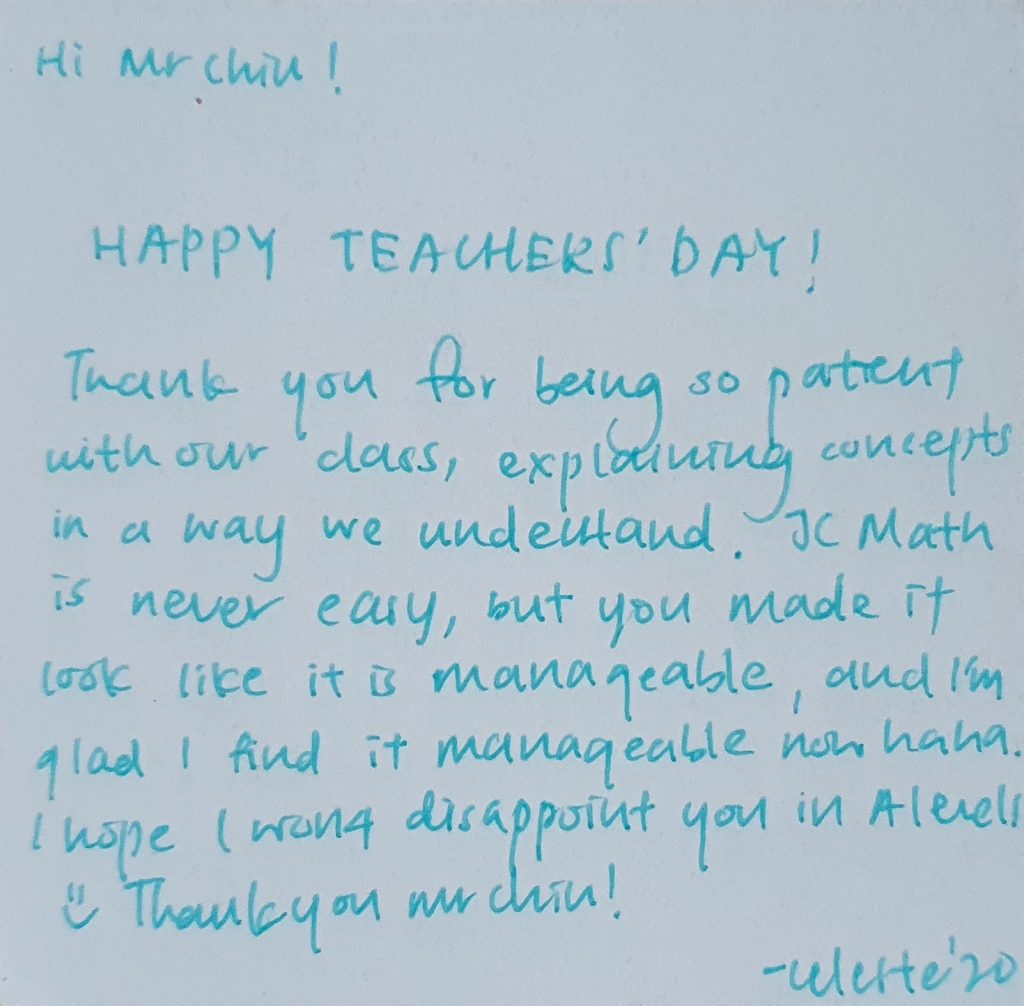 Hi Mr Chin!
HAPPY TEACHERS' DAY!
Thank you for being so patient
with our class, explaining concepts
in a way we understand. JC Math
is never easy, but you made it
look like it is manageable, and I'm
glad I find it manageable now haha.
I hope I wont disappoint you in A levels
:) Thank you mr chin!
-celeste'20